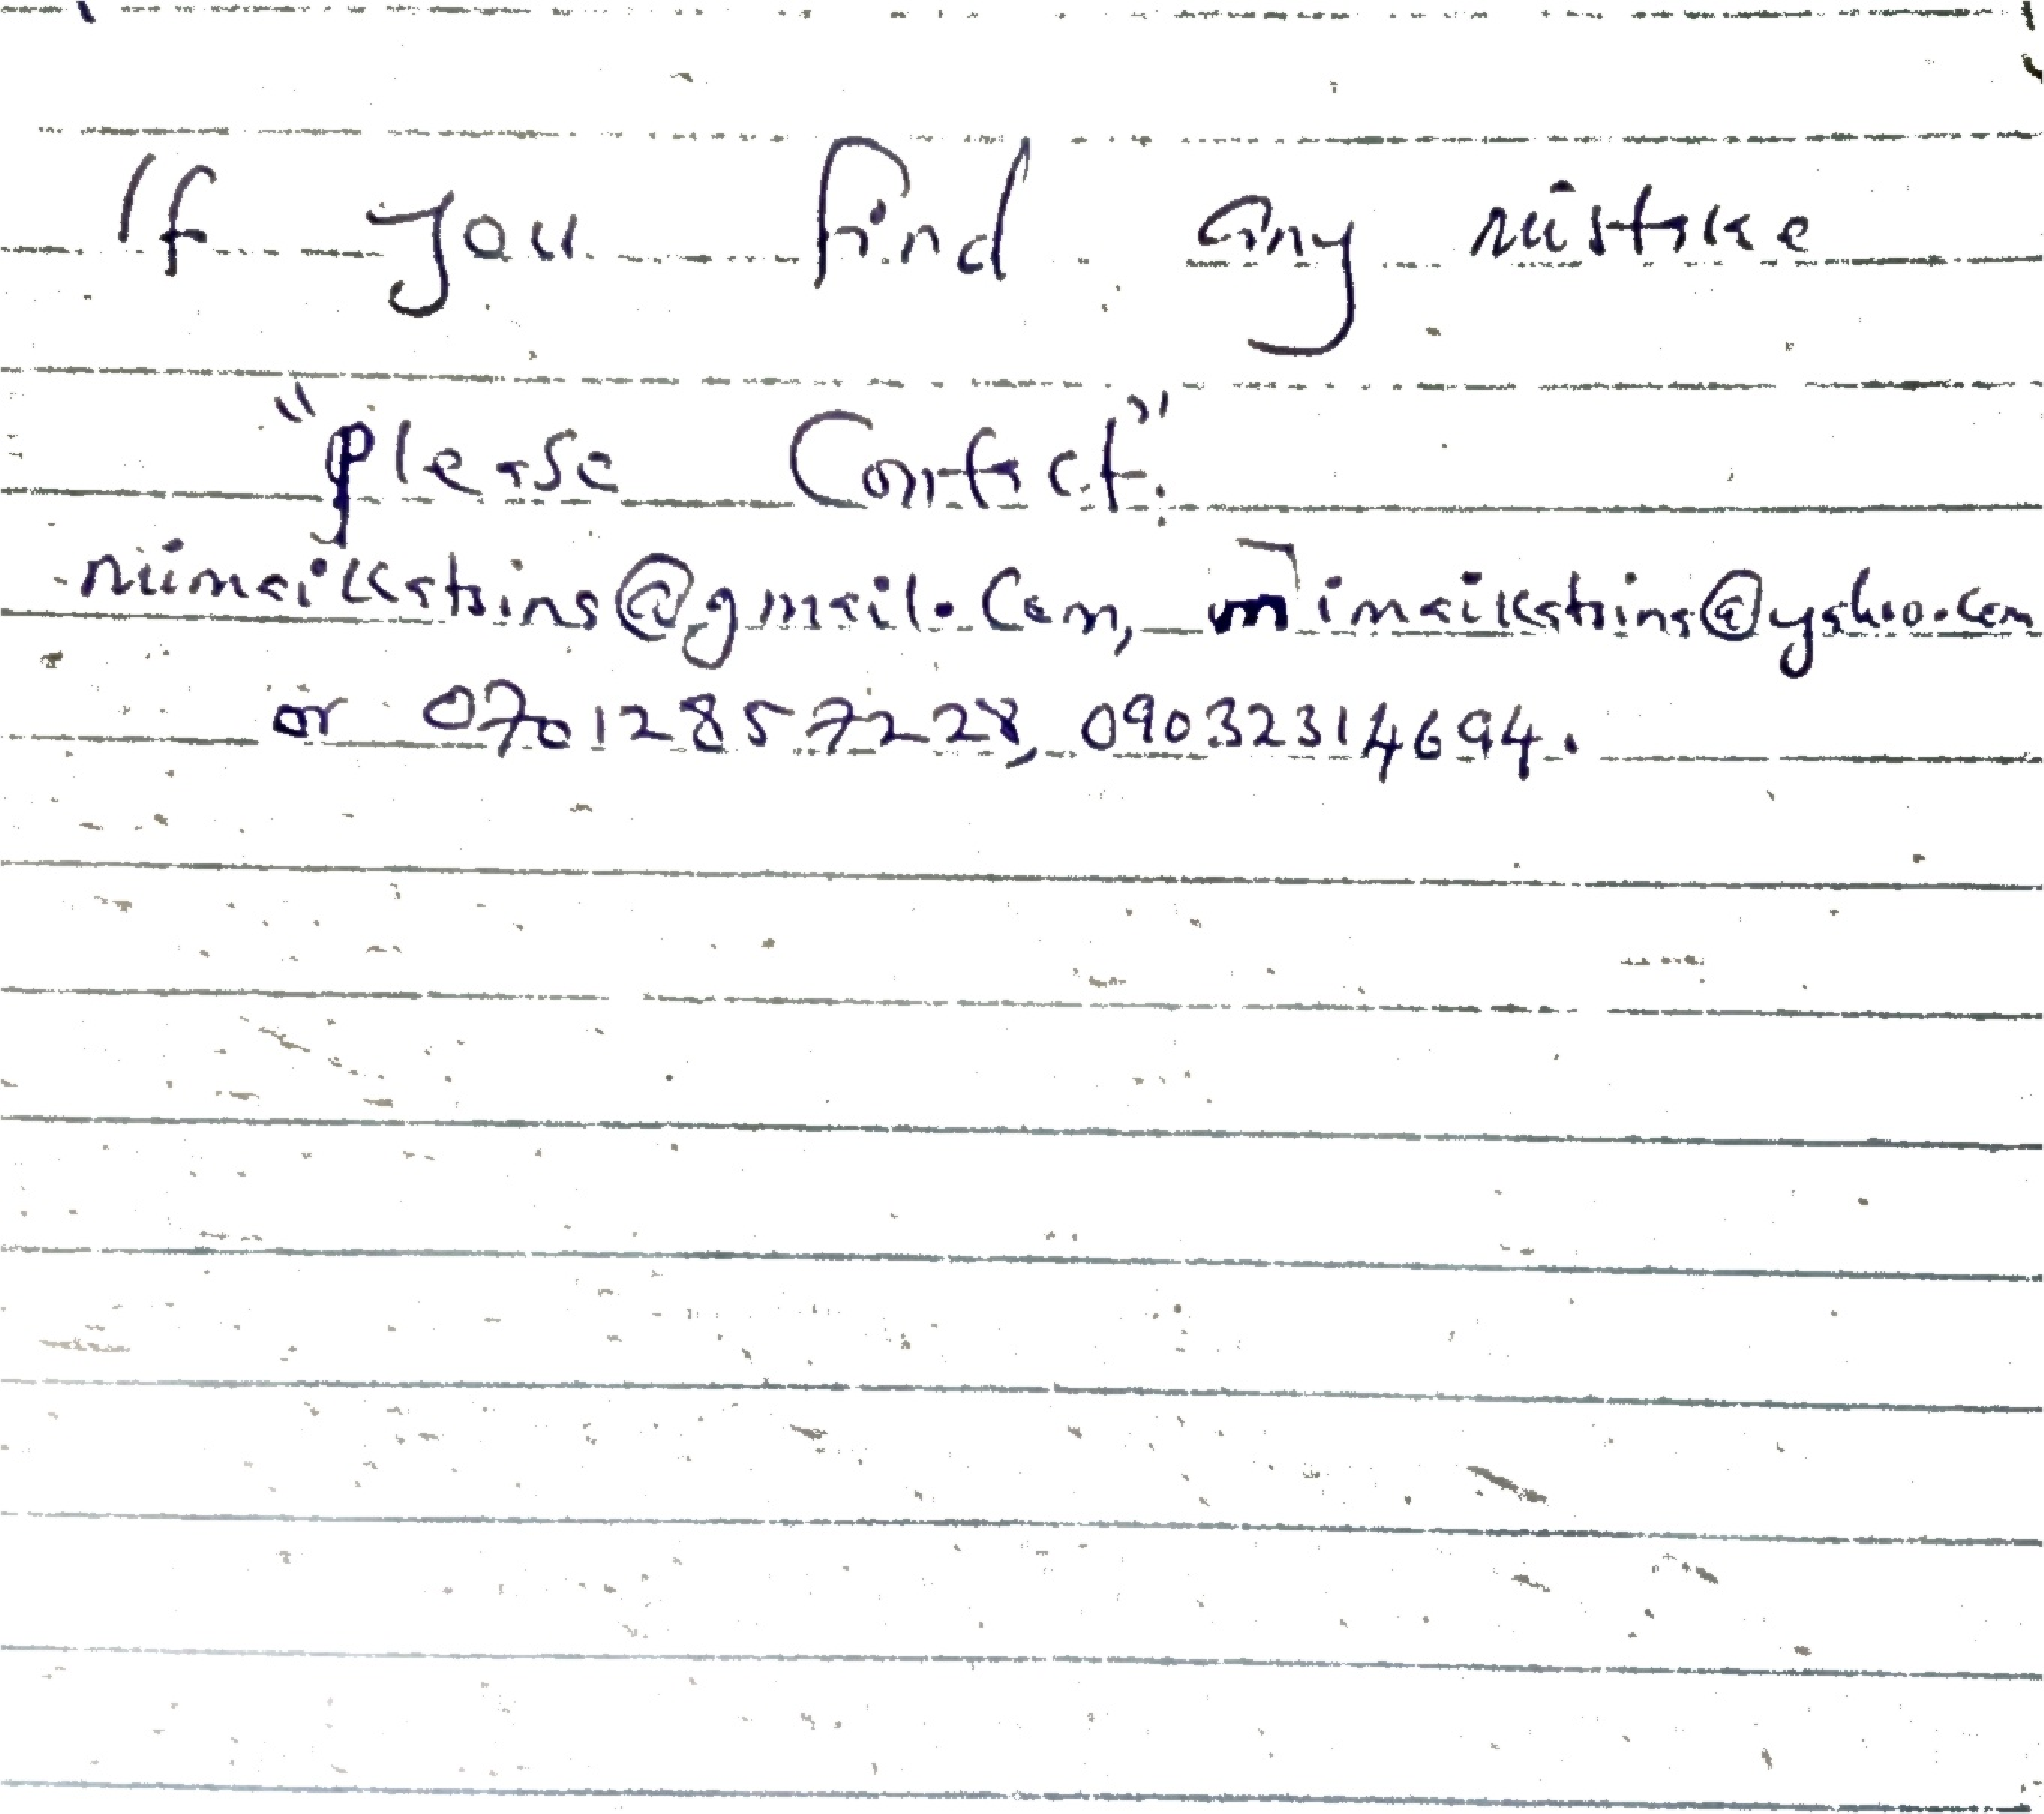 If you find any mistake
"please Contact":
mimaikatsins@gmail.Com, mimaikatsins@yahoo.com
or 07012857228, 09032314694.